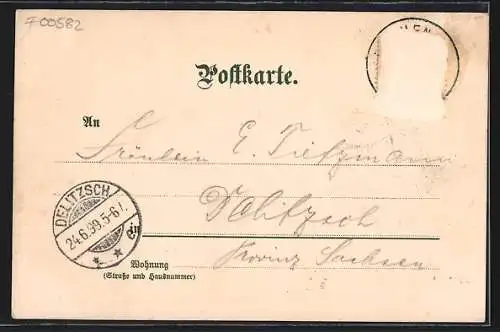 F00582
Postkarte.
An
Fräulein E. Tietzmann
DELITZSCH
24.6.99.5-6N.
Delitzsch
in
Provinz Sachsen
Wohnung
(Straße und Hausnummer)